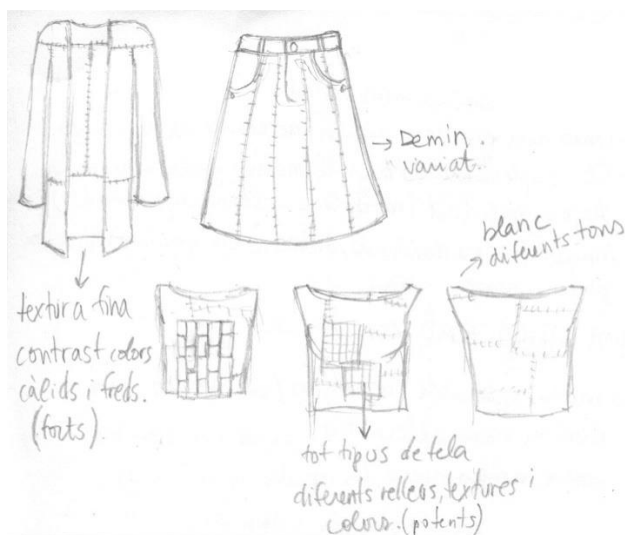 → Demin.
variat.
blanc
diferents tons
textura fina
contrast colors
càlids i freds.
(forts)
tot tipus de tela
diferents relleus, textures i
colors. (potents)